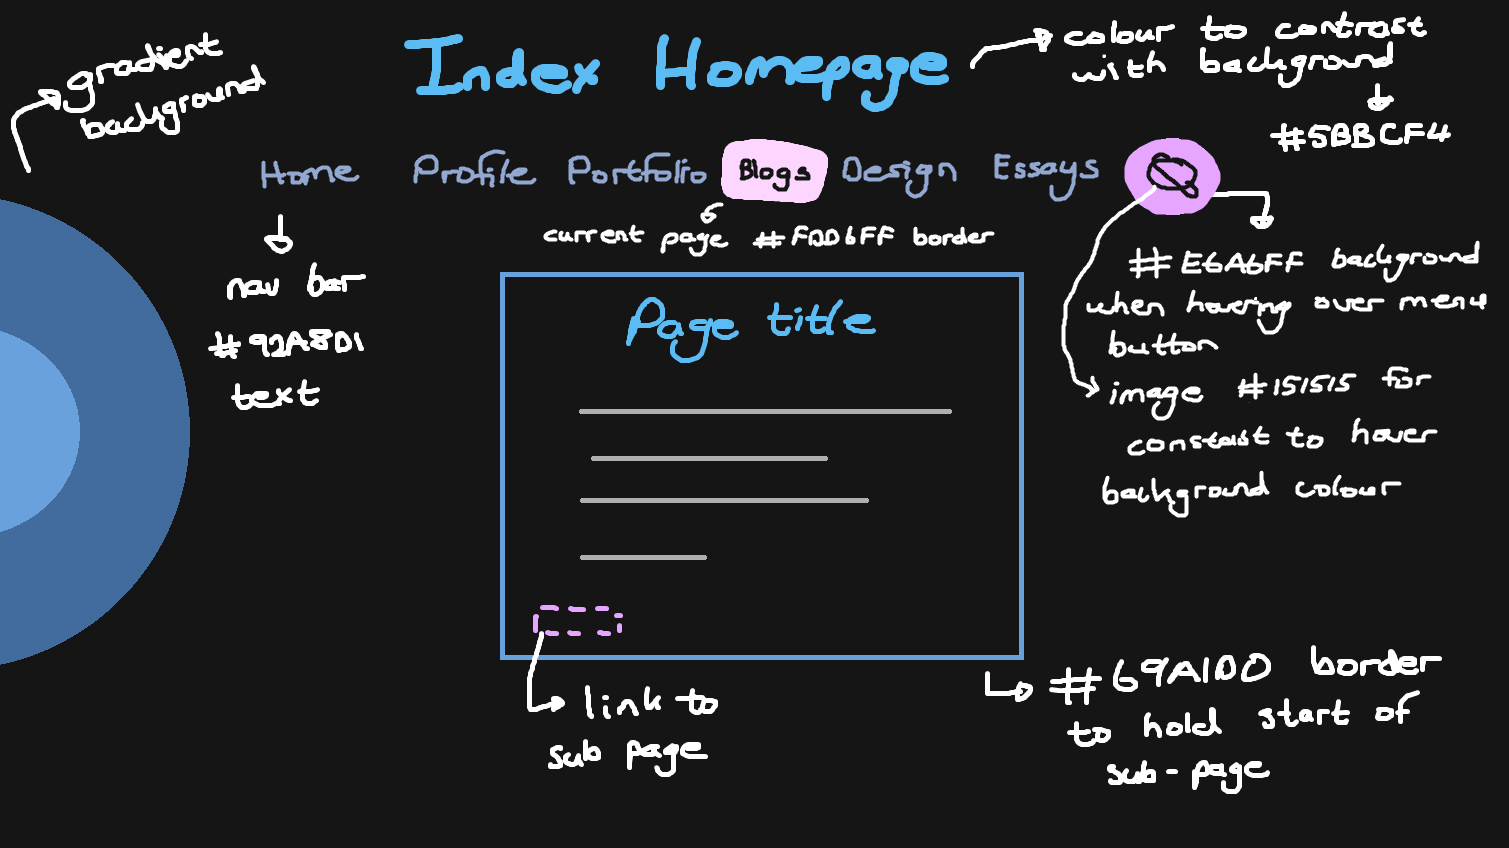 gradient
background
Index Homepage
colour to contrast
with background
#5BBCF4
Home Profile Portfolio Blogs Design Essays
current page #FDD6FF border
nav bar
#92A8D1
text
Page title
#E6A6FF background
when hovering over menu
button
image #151515 for
constast to hover
background colour
link to
sub page
#69A1DD border
to hold start of
sub-page